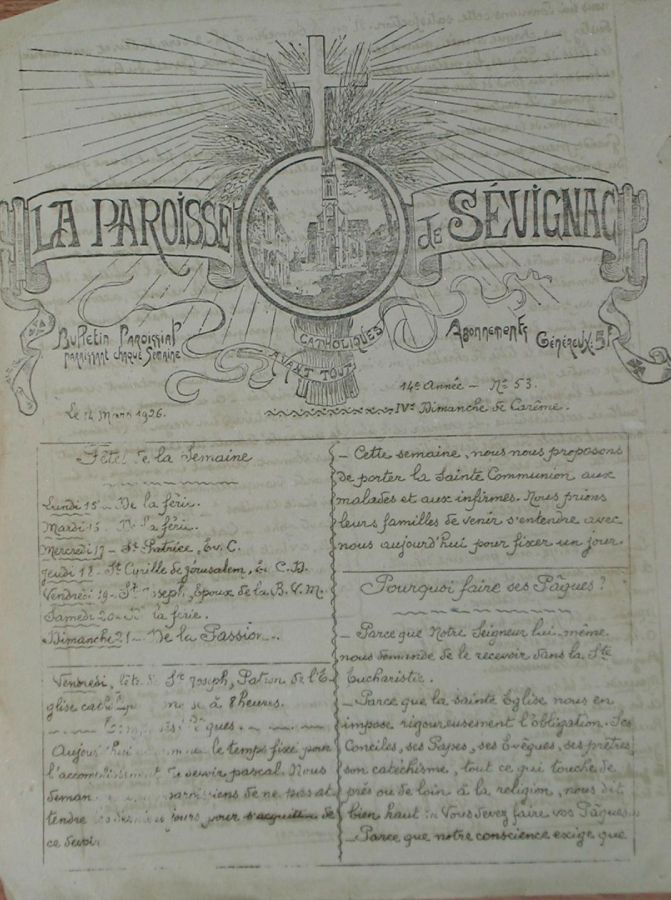 LA PAROISSE de SÉVIGNAC
Bulletin Paroissial
paraissant chaque Semaine
CATHOLIQUES
AVANT TOUT
Abonnements Généreux: 5f
14e Année - No 53.
Le 14 Mars 1926.
IVe Dimanche de Carême.
Fêtes de la Semaine
Lundi 15 - De la férie.
Mardi 16 De la férie.
Mercredi 17 - St Patrice, Ev. C.
Jeudi 18. St Cyrille de Jérusalem, Ev. C. D.
Vendredi 19 - St Joseph, Epoux de la B. V. M.
Samedi 20 - la férie.
Dimanche 21 - De la Passion.
Vendredi, fête de St Joseph, Patron de l'E-
glise à 8 heures.
Pâques.
Aujourd'hui le temps fixé pour
l'accomplissement du devoir pascal. Nous
paroissiens de ne pas at
tendre jours pour s'acquitter de
ce devoir
- Cette semaine, nous nous proposons
de porter la Sainte Communion aux
malades et aux infirmes. Nous prions
leurs familles de venir s'entendre avec
nous aujourd'hui pour fixer un jour.
Pourquoi faire ses Pâques?
- Parce que Notre Seigneur lui-même
nous demande de le recevoir dans la Ste
Eucharistie.
- Parce que la sainte Eglise nous en
impose rigoureusement l'obligation. Ses
Conciles, ses Papes, ses Evêques, ses prêtres,
son catéchisme, tout ce qui touche de
près ou de loin à la religion, nous dit
bien haut: "Vous devez faire vos Pâques"
- Parce que notre conscience exige que